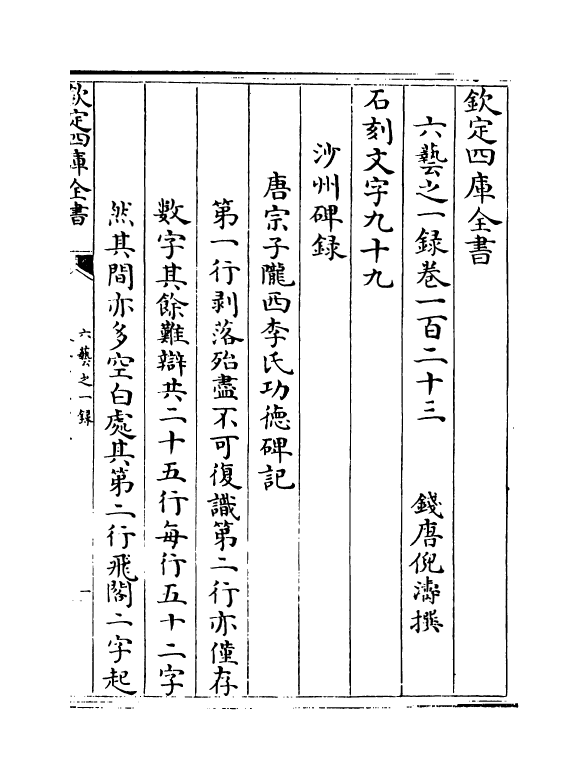 欽定四庫全書
六藝之一録卷一百二十三 錢唐倪濤撰
石刻文字九十九
沙州碑録
唐宗子隴西李氏功德碑記
第一行剥落殆盡不可復識第二行亦僅存
數字其餘難辯共二十五行每行五十二字
然其間亦多空白處其第二行飛閣二字起
欽定四庫全書
六藝之一録
一